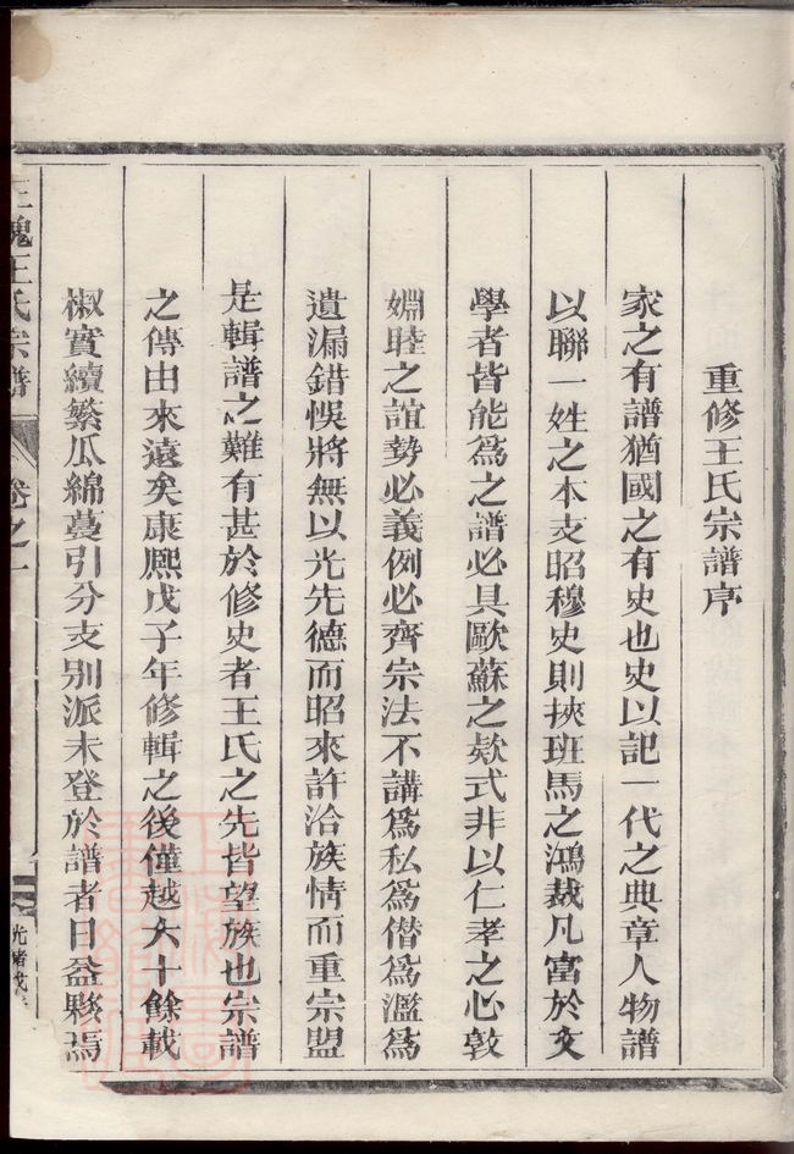 重修王氏宗譜序
家之有譜猶國之有史也史以記一代之典章人物譜
以聯一姓之本支昭穆史則挾班馬之鴻裁凡富於文
學者皆能爲之譜必具歐蘇之欵式非以仁孝之心敦
婣睦之誼勢必義例必齊宗法不講爲私爲僭爲濫爲
遺漏錯悞將無以光先德而昭來許洽族情而重宗盟
是輯譜之難有甚於修史者王氏之先皆望族也宗譜
之傳由來遠矣康熈戊子年修輯之後僅越六十餘載
椒實續繁瓜綿蔓引分支別派未登於譜者日益夥焉
槐王氏宗譜
卷之一
光緒戊